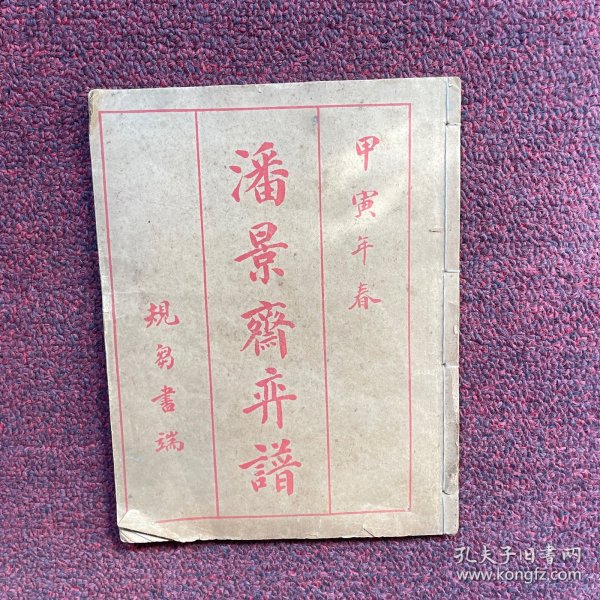 甲寅年春
潘景齋弈譜
規匋書端
孔夫子旧書网
www.kongfz.com